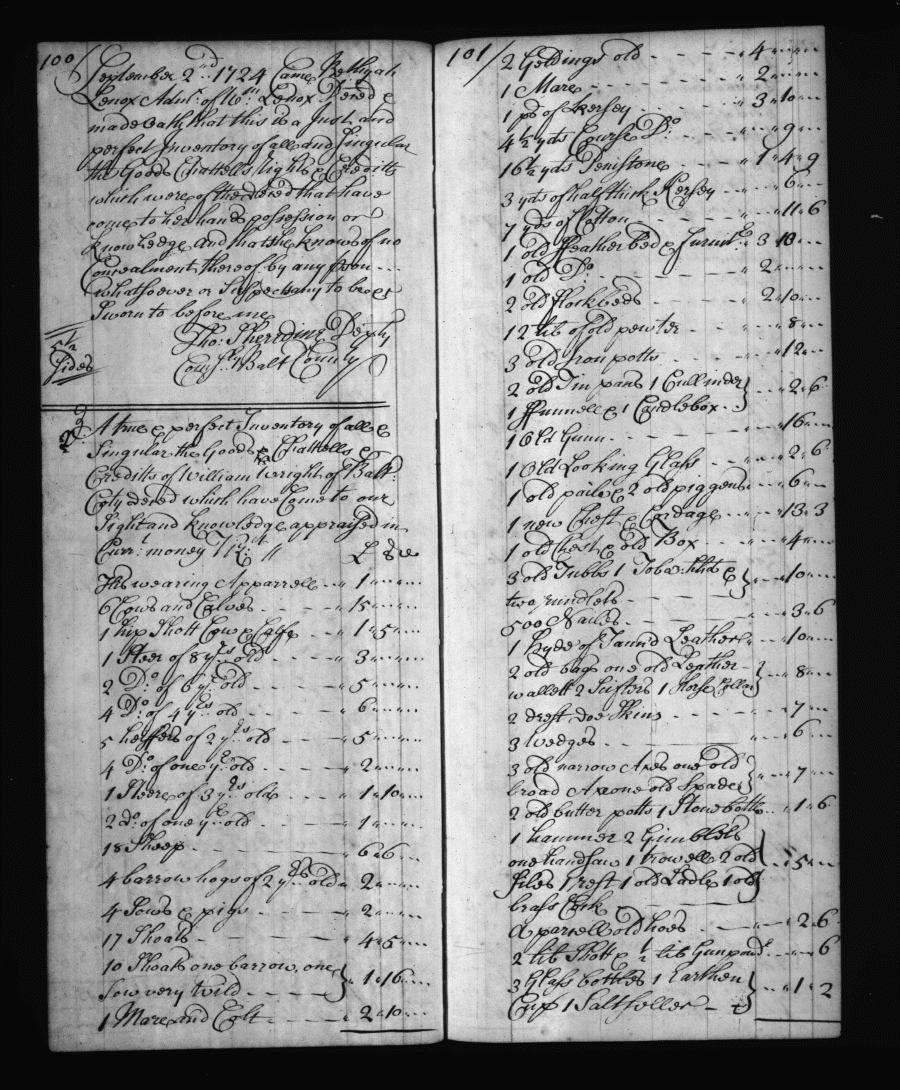 100/
September 2nd 1724 Came Bethyah
Lenox Adm.r of Wm Lenox Deced &
made Oath that this is a Just and
perfect Inventory of all and Singular
the Goods Chattells rights & Creditts
which were of the deced that have
come to her hands possession or
knowledge and that she knows of no
Concealment thereof by any pson
whatsoever or Suspects any to be &c
Sworn to before me
Tho: Sheredine Depty
Comsry Balt County
Sides
A true & perfect Inventory of all &
Singular the Goods & Chattells &
Creditts of William Wright of Balt:
Coty deced which have Come to our
Sight and knowledge appraised in
Curr.t money £ s d
His wearing Apparrell 1
6 Cows and Calves 15
1 hip Shott Cow & Calfe 1 5
1 Steer of 8 yrs Old 3
2 Do of 6 yr old 5
4 Do of 4 yrs old 6
5 heiffers of 2 yrs old 5
4 Do of one yr old 2
1 Steere of 3 yrs old 1 10
2 do of one yr old 1
18 Sheep 6 6
4 barrow hogs of 2 yrs old 2
4 Sows & pigs 2
17 Shoats 4 5
10 Shoats one barrow, one
Sow very Wild 1 16
1 Mare and Colt 2 10
101/
2 Geldings old 4
1 Mare 2
1 ps of Kersey 3 10
4 1/2 yds Course Do 9
16 1/2 yds Penistone 1 4 9
3 yds of half thick Kersey 6
7 yds of Cotton 11 6
1 old ffeather bed & furnit.e 3 10
1 old Do 2
2 old fflock beds 2 10
12 lib of old pewter 8
3 old Iron potts 12
2 old Tin pans 1 Cullinder
1 ffunnell & 1 Candlebox 2 6
1 Old Gunn 16
1 Old Looking Glass 2 6
1 old paile & 2 old piggens 6
1 new Chest & Cordage 13 3
1 old Chest & old Box 4
3 old Tubbs 1 Toba: hhd &
two rundlets 10
500 Nailes 3 6
1 hyde of Tann'd Leather 10
2 old bags one old Leather
wallett 2 Sifters 1 Horse Collar 8
2 drest doe Skins 7
3 wedges 6
3 old narrow Axes one old
broad Axe one old Spade 7
2 old butter potts 1 Stone bottle 1 6
1 hammer 2 Gimblets
one handsaw 1 trowell 2 old
files 1 rest 1 old Ladle 1 old 5
brass Cock
a parsell old hoes 2 6
2 lib Shott & 1/2 lib Gunpowd.r 6
3 Glass bottles 1 Earthen
Cup 1 Saltseller 1 2